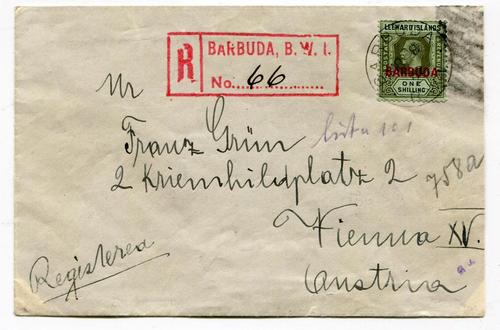 R BARBUDA, B. W. I.
No. 66
LEEWARD ISLANDS
POSTAGE REVENUE
BARBUDA
ONE
SHILLING
BARBUDA
Mr
Franz Grün
2 Kriemhildplatz 2
758a
Vienna XV.
Austria
Registered